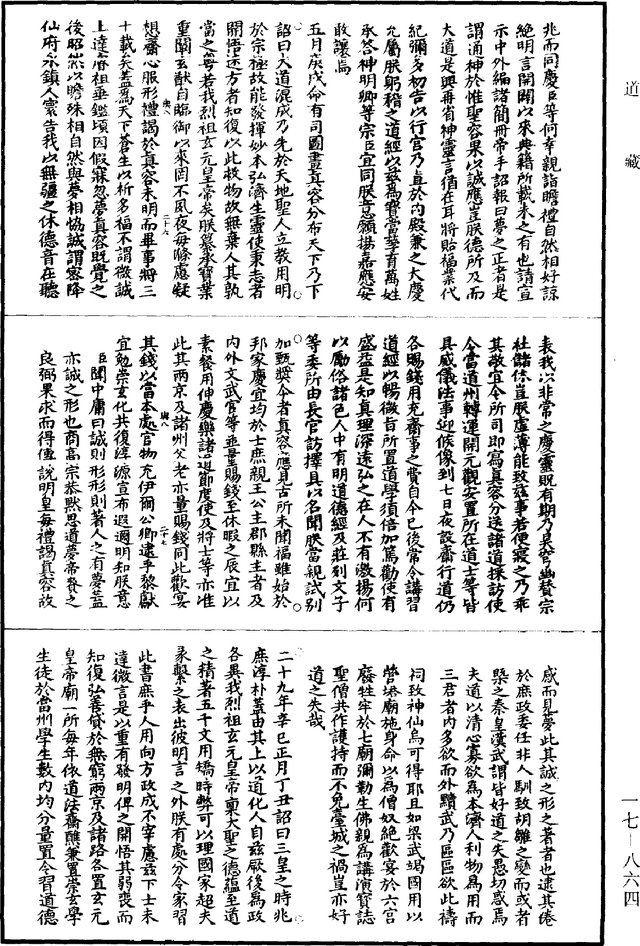 道藏
兆而同慶臣等何幸親詣瞻禮自然相好諒
絕明言開闢以來典籍所載未之有也請宣
示中外編諸簡冊帝手詔報曰夢之正者是
謂通神於惟聖容果以誠應豈朕德所及而
大道是興再省神靈言猶在耳將貽福業代
紀彌多初告以行宮乃直於內殿兼之大慶
允屬朕躬稽之道經以茲萬賚當華育萬姓
承答神明卿等宗臣宜同朕意願揚嘉應安
敢讓焉
五月庚戌命有司圖畫真容分布天下乃下
詔曰大道混成乃先於天地聖人立教用明
於宗極故能發揮妙本弘濟生靈使秉志者
開悟迷方者知復以此救物故無棄人其孰
當之粵若我烈祖玄元皇帝矣朕纂承寶業
重闡玄猷自臨御以來罔不夙夜每滌慮凝
想齋心服形禮謁於真容未明而畢事將三
十載矣蓋為天下蒼生以祈多福不謂微誠
上達睿祖垂鑑頃因假寐忽夢真容既覺之
後昭然以瞻殊相自然與夢相協誠謂密降
仙府永鎮人寰告我以無疆之休德音在聽
表我以非常之慶靈既有期乃昊穹幽贊宗
社儲休豈朕虛薄能致茲事若便寢之乃乖
其敬宜令所司即寫真容分送諸道採訪使
令當道州轉運開元觀安置所在道士等皆
具威儀法事迎候像到七日夜設齋行道仍
各賜錢用充齋事之費自今已後常令講習
道經以暢微旨所置道學須倍加篤勸使有
盛益是知真理深遠弘之在人不有激揚何
以勵俗諸色人中有明道德經及莊列文子
等委所由長官訪擇具以名聞朕當親試別
加甄獎今者真容應見古所未聞福雖始於
邦家慶宜均於士庶親王公主郡縣主者及
內外文武官等並量賜錢至休暇之辰宜以
素餐用伸慶樂諸道節度使及將士等亦准
此其兩京及諸州父老亦量賜錢同此歡宴
其錢以當本處官物充伊爾公卿逮乎黎獻
宜勉崇玄化共復淳源宣布遐邇明知朕意
臣聞中庸曰誠則形形則著人之有夢蓋
亦誠之形也商高宗恭默思道夢帝賚之
良弼果求而得傅說明皇每禮謁真容故
感而見夢此其誠之形之著者也逮其倦
於庶政委任非人馴致胡雛之變而或者
槩之秦皇漢武謂皆好道之失愚切惑焉
夫道以清心寡欲為本濟人利物為用而
三君者內多欲而外黷武乃區區欲此禱
祠致神仙烏可得耶且如梁武竭國用以
營塔廟施身命以為僧奴絕歡宴於六宮
廢牲牢於七廟彌勒生佛親為講演寶誌
聖僧共作護持而不免臺城之禍豈亦好
道之失哉
二十九年辛巳正月丁丑詔曰三皇之時兆
庶淳朴蓋由其上以道化人自茲厥後為政
各異我烈祖玄元皇帝稟大聖之德蘊至道
之精著五千文用矯時弊可以理國家超夫
彖繫之表出彼明言之外朕有處分令家習
此書庶乎人用向方政成不宰慮茲下士未
達微言是以重有發明俾之開悟其弱喪而
知復弘善貸於無窮兩京及諸路各置玄元
皇帝廟一所每年依道法齋醮兼置崇玄學
生徒於當州學生數內均分量置令習道德
一七－八六四